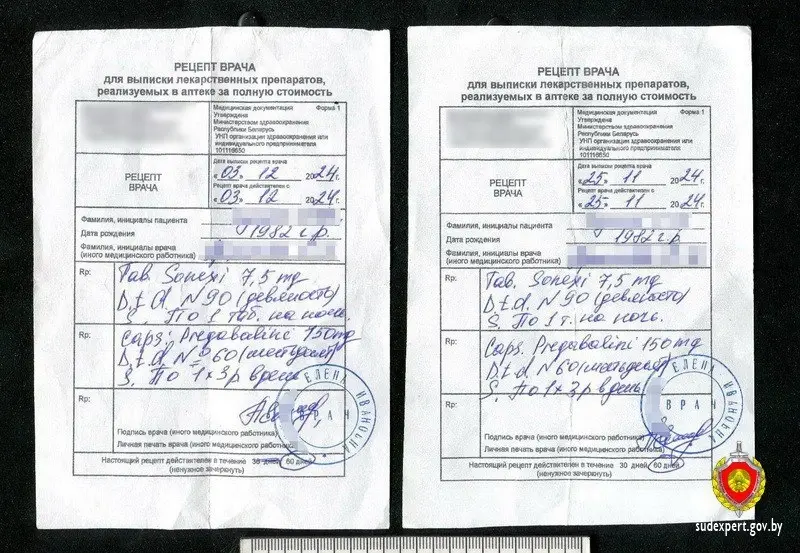 РЕЦЕПТ ВРАЧА
для выписки лекарственных препаратов,
реализуемых в аптеке за полную стоимость
Медицинская документация Форма 1
Утверждена
Министерством здравоохранения
Республики Беларусь
УНП организации здравоохранения или
индивидуального предпринимателя
101116650
РЕЦЕПТ
ВРАЧА
Дата выписки рецепта врача
«03» 12 2024г.
Рецепт врача действителен с
«03» 12 2024г.
Фамилия, инициалы пациента
Дата рождения 1982 г.р.
Фамилия, инициалы врача
(иного медицинского работника)
Rp: Tab. Sonexi 7,5 mg
D.t.d. N 90 (девяносто)
S. По 1 таб. на ночь.
Rp: Caps. Pregabalini 150 mg
D.t.d. N 60 (шестьдесят)
S. По 1 х 3 р в день
Rp:
ЕЛЕНА ИВАНОВНА
ВРАЧ
Подпись врача (иного медицинского работника)
Личная печать врача (иного медицинского работника)
Настоящий рецепт действителен в течение 30 дней 60 дней
(ненужное зачеркнуть)
РЕЦЕПТ ВРАЧА
для выписки лекарственных препаратов,
реализуемых в аптеке за полную стоимость
Медицинская документация Форма 1
Утверждена
Министерством здравоохранения
Республики Беларусь
УНП организации здравоохранения или
индивидуального предпринимателя
101116650
РЕЦЕПТ
ВРАЧА
Дата выписки рецепта врача
«25» 11 2024г.
Рецепт врача действителен с
«25» 11 2024г.
Фамилия, инициалы пациента
Дата рождения 1982 г.р.
Фамилия, инициалы врача
(иного медицинского работника)
Rp: Tab. Sonexi 7,5 mg
D.t.d. N 90 (девяносто)
S. По 1 т. на ночь.
Rp: Caps. Pregabalini 150 mg
D.t.d. N 60 (шестьдесят)
S. По 1 х 3 р в день
Rp:
ЕЛЕНА ИВАНОВНА
ВРАЧ
Подпись врача (иного медицинского работника)
Личная печать врача (иного медицинского работника)
Настоящий рецепт действителен в течение 30 дней 60 дней
(ненужное зачеркнуть)
sudexpert.gov.by